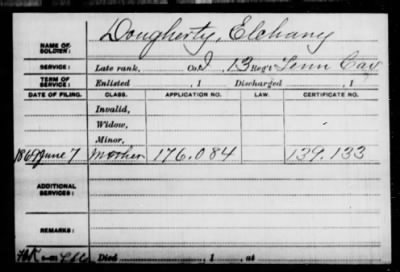 NAME OF SOLDIER: Dougherty, Elchany
SERVICE: Late rank, Co. I, 13 Reg't Tenn Cav
TERM OF SERVICE: Enlisted , 1 Discharged , 1
DATE OF FILING. CLASS. APPLICATION NO. LAW. CERTIFICATE NO.
Invalid,
Widow,
Minor,
1869 June 7 Mother 176.084 139.133
ADDITIONAL SERVICES:
REMARKS:
Died , 1 , at